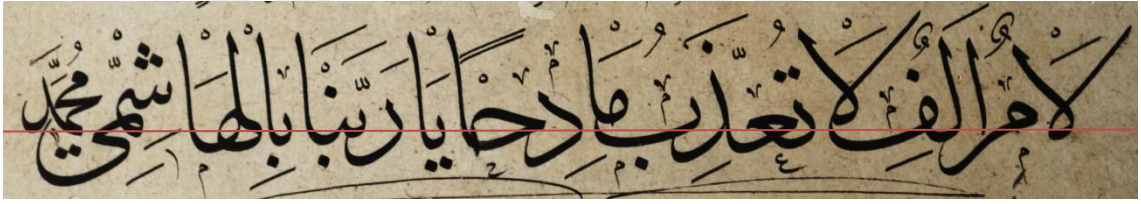 لام الف لا تعذب مادحا يا ربنا بالهاشمي محمد